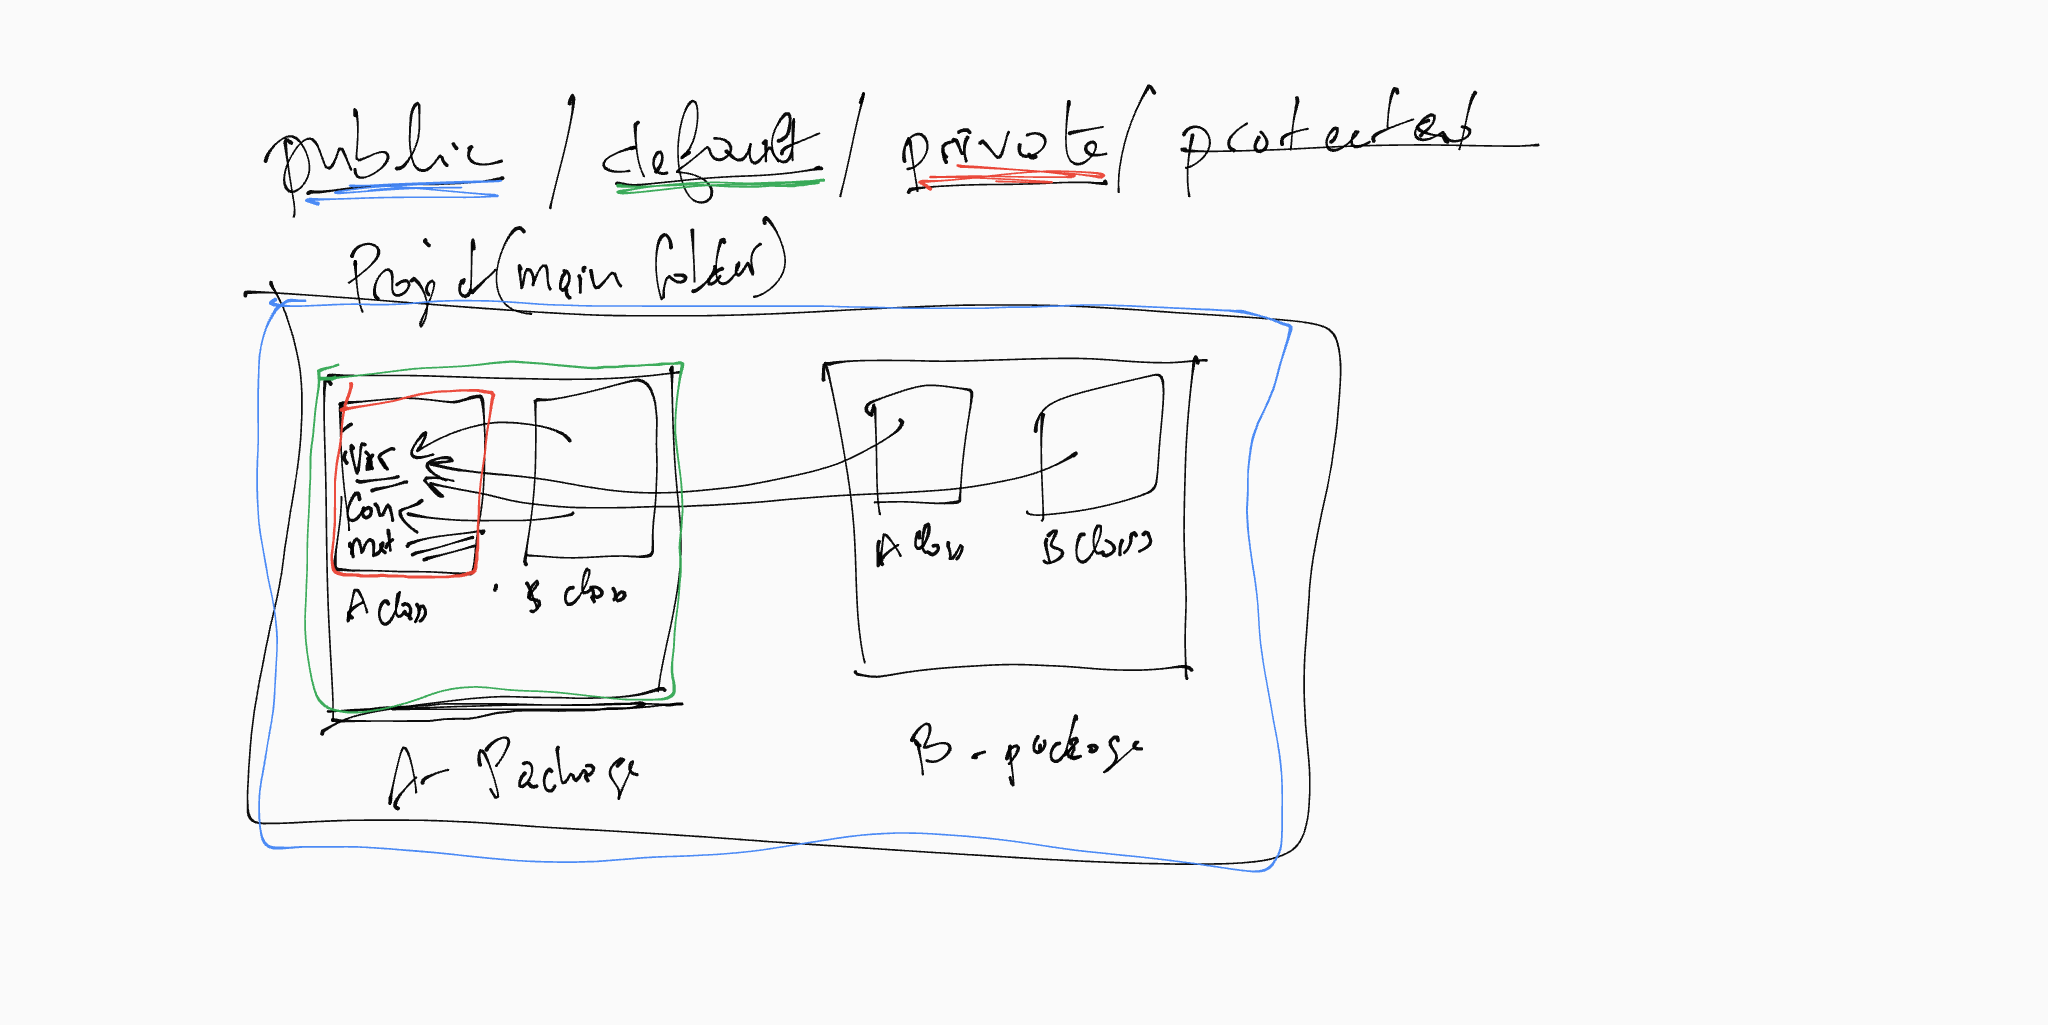 public / default / private / protected
Project (main folder)
Var
Con
met
A class
B class
A class
B class
A- Package
B - package